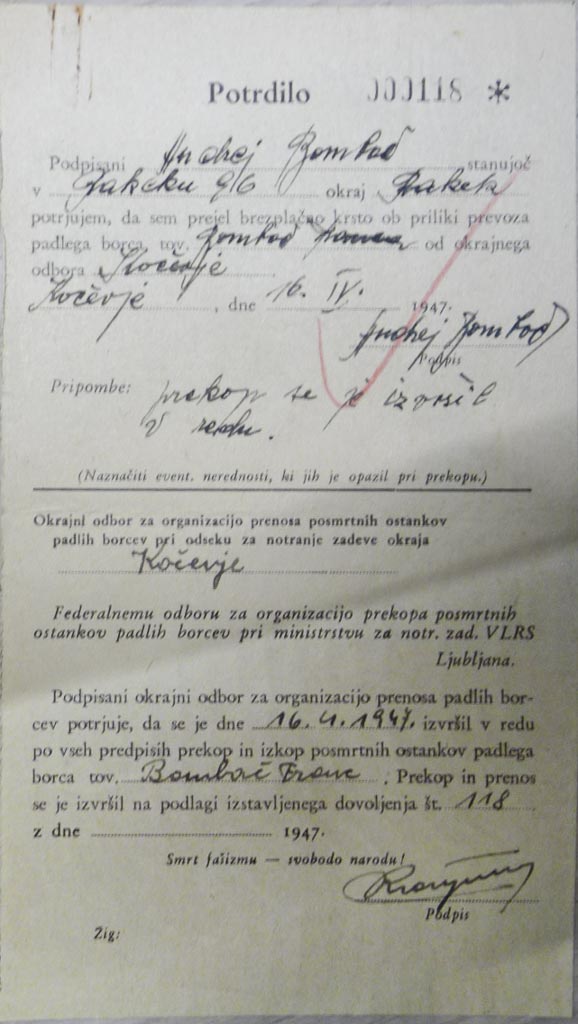 Potrdilo 000118 *
Podpisani Andrej Bombač stanujoč
v Rakeku 96 okraj Rakek
potrjujem, da sem prejel brezplačno krsto ob priliki prevoza
padlega borca, tov. Bombač od okrajnega
odbora Kočevje
Kočevje, dne 16. IV. 1947.
Andrej Bombač
Podpis
Pripombe: prekop se je izvršil
v redu.
(Naznačiti event. nerednosti, ki jih je opazil pri prekopu.)
Okrajni odbor za organizacijo prenosa posmrtnih ostankov
padlih borcev pri odseku za notranje zadeve okraja
Kočevje
Federalnemu odboru za organizacijo prekopa posmrtnih
ostankov padlih borcev pri ministrstvu za notr. zad. VLRS
Ljubljana.
Podpisani okrajni odbor za organizacijo prenosa padlih bor-
cev potrjuje, da se je dne 16.4.1947. izvršil v redu
po vseh predpisih prekop in izkop posmrtnih ostankov padlega
borca tov. Bombač Franc. Prekop in prenos
se je izvršil na podlagi izstavljenega dovoljenja št. 118
z dne 1947.
Smrt fašizmu — svobodo narodu!
Podpis
Žig: